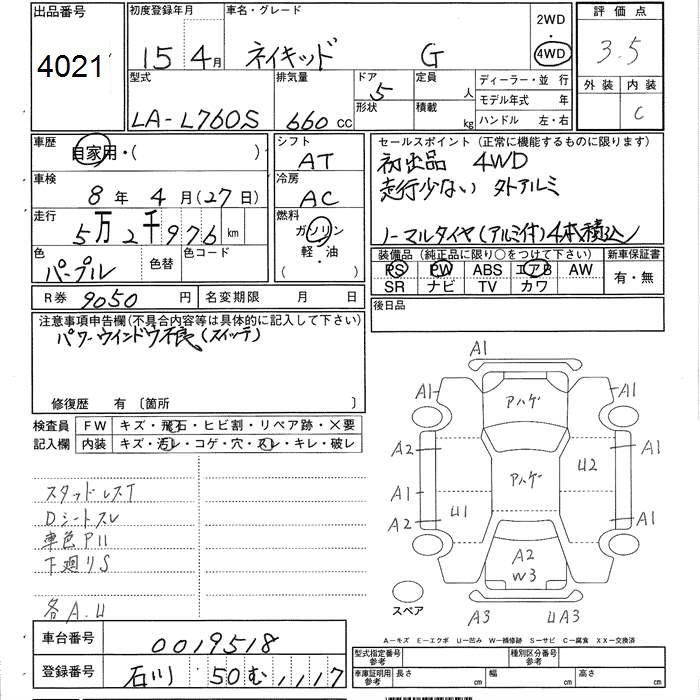 出品番号 4021
初度登録年月 15 4月
車名・グレード ネイキッド G
2WD
4WD
評価点 3.5
外装 内装 C
型式 LA-L760S
排気量 660 CC
ドア 5
形状
定員 人
積載 kg
ディーラー・並行
モデル年式 年
ハンドル 左・右
車歴 自家用・( )
車検 8年 4月(27日)
走行 5万2千976 km
色 パープル 色替 色コード
シフト AT
冷房 AC
燃料 ガソリン
軽・油
( )
セールスポイント (正常に機能するものに限ります)
初出品 4WD
走行少ない 外アルミ
ノーマルタイヤ(アルミ付)4本積込
装備品 (純正品に限り○をつけて下さい) 新車保証書
PS PW ABS エアB AW 有・無
SR ナビ TV カワ
R券 9050 円 名変期限 月 日
後日品
注意事項申告欄(不具合内容等は具体的に記入して下さい)
パワーウインドウ不良(スイッチ)
修復歴 有 〔箇所 〕
検査員 FW キズ・飛石・ヒビ割・リペア跡・X要
記入欄 内装 キズ・汚レ・コゲ・穴・スレ・キレ・破レ
スタッドレスT
Dシートスレ
車色P11
下廻りS
各A.U
A1
A1 アハゲ A1
A2 U2 A1
A1 アハゲ
A2 U1 A1
A2
W3
スペア A3 UA3
A-キズ E-エクボ U-凹み W-補修跡 S-サビ C-腐食 XX-交換済
車台番号 0019518
登録番号 石川 50 む 1117
型式指定番号 参考 種別区分番号 参考
車庫証明用 参考 長さ cm 幅 cm 高さ cm